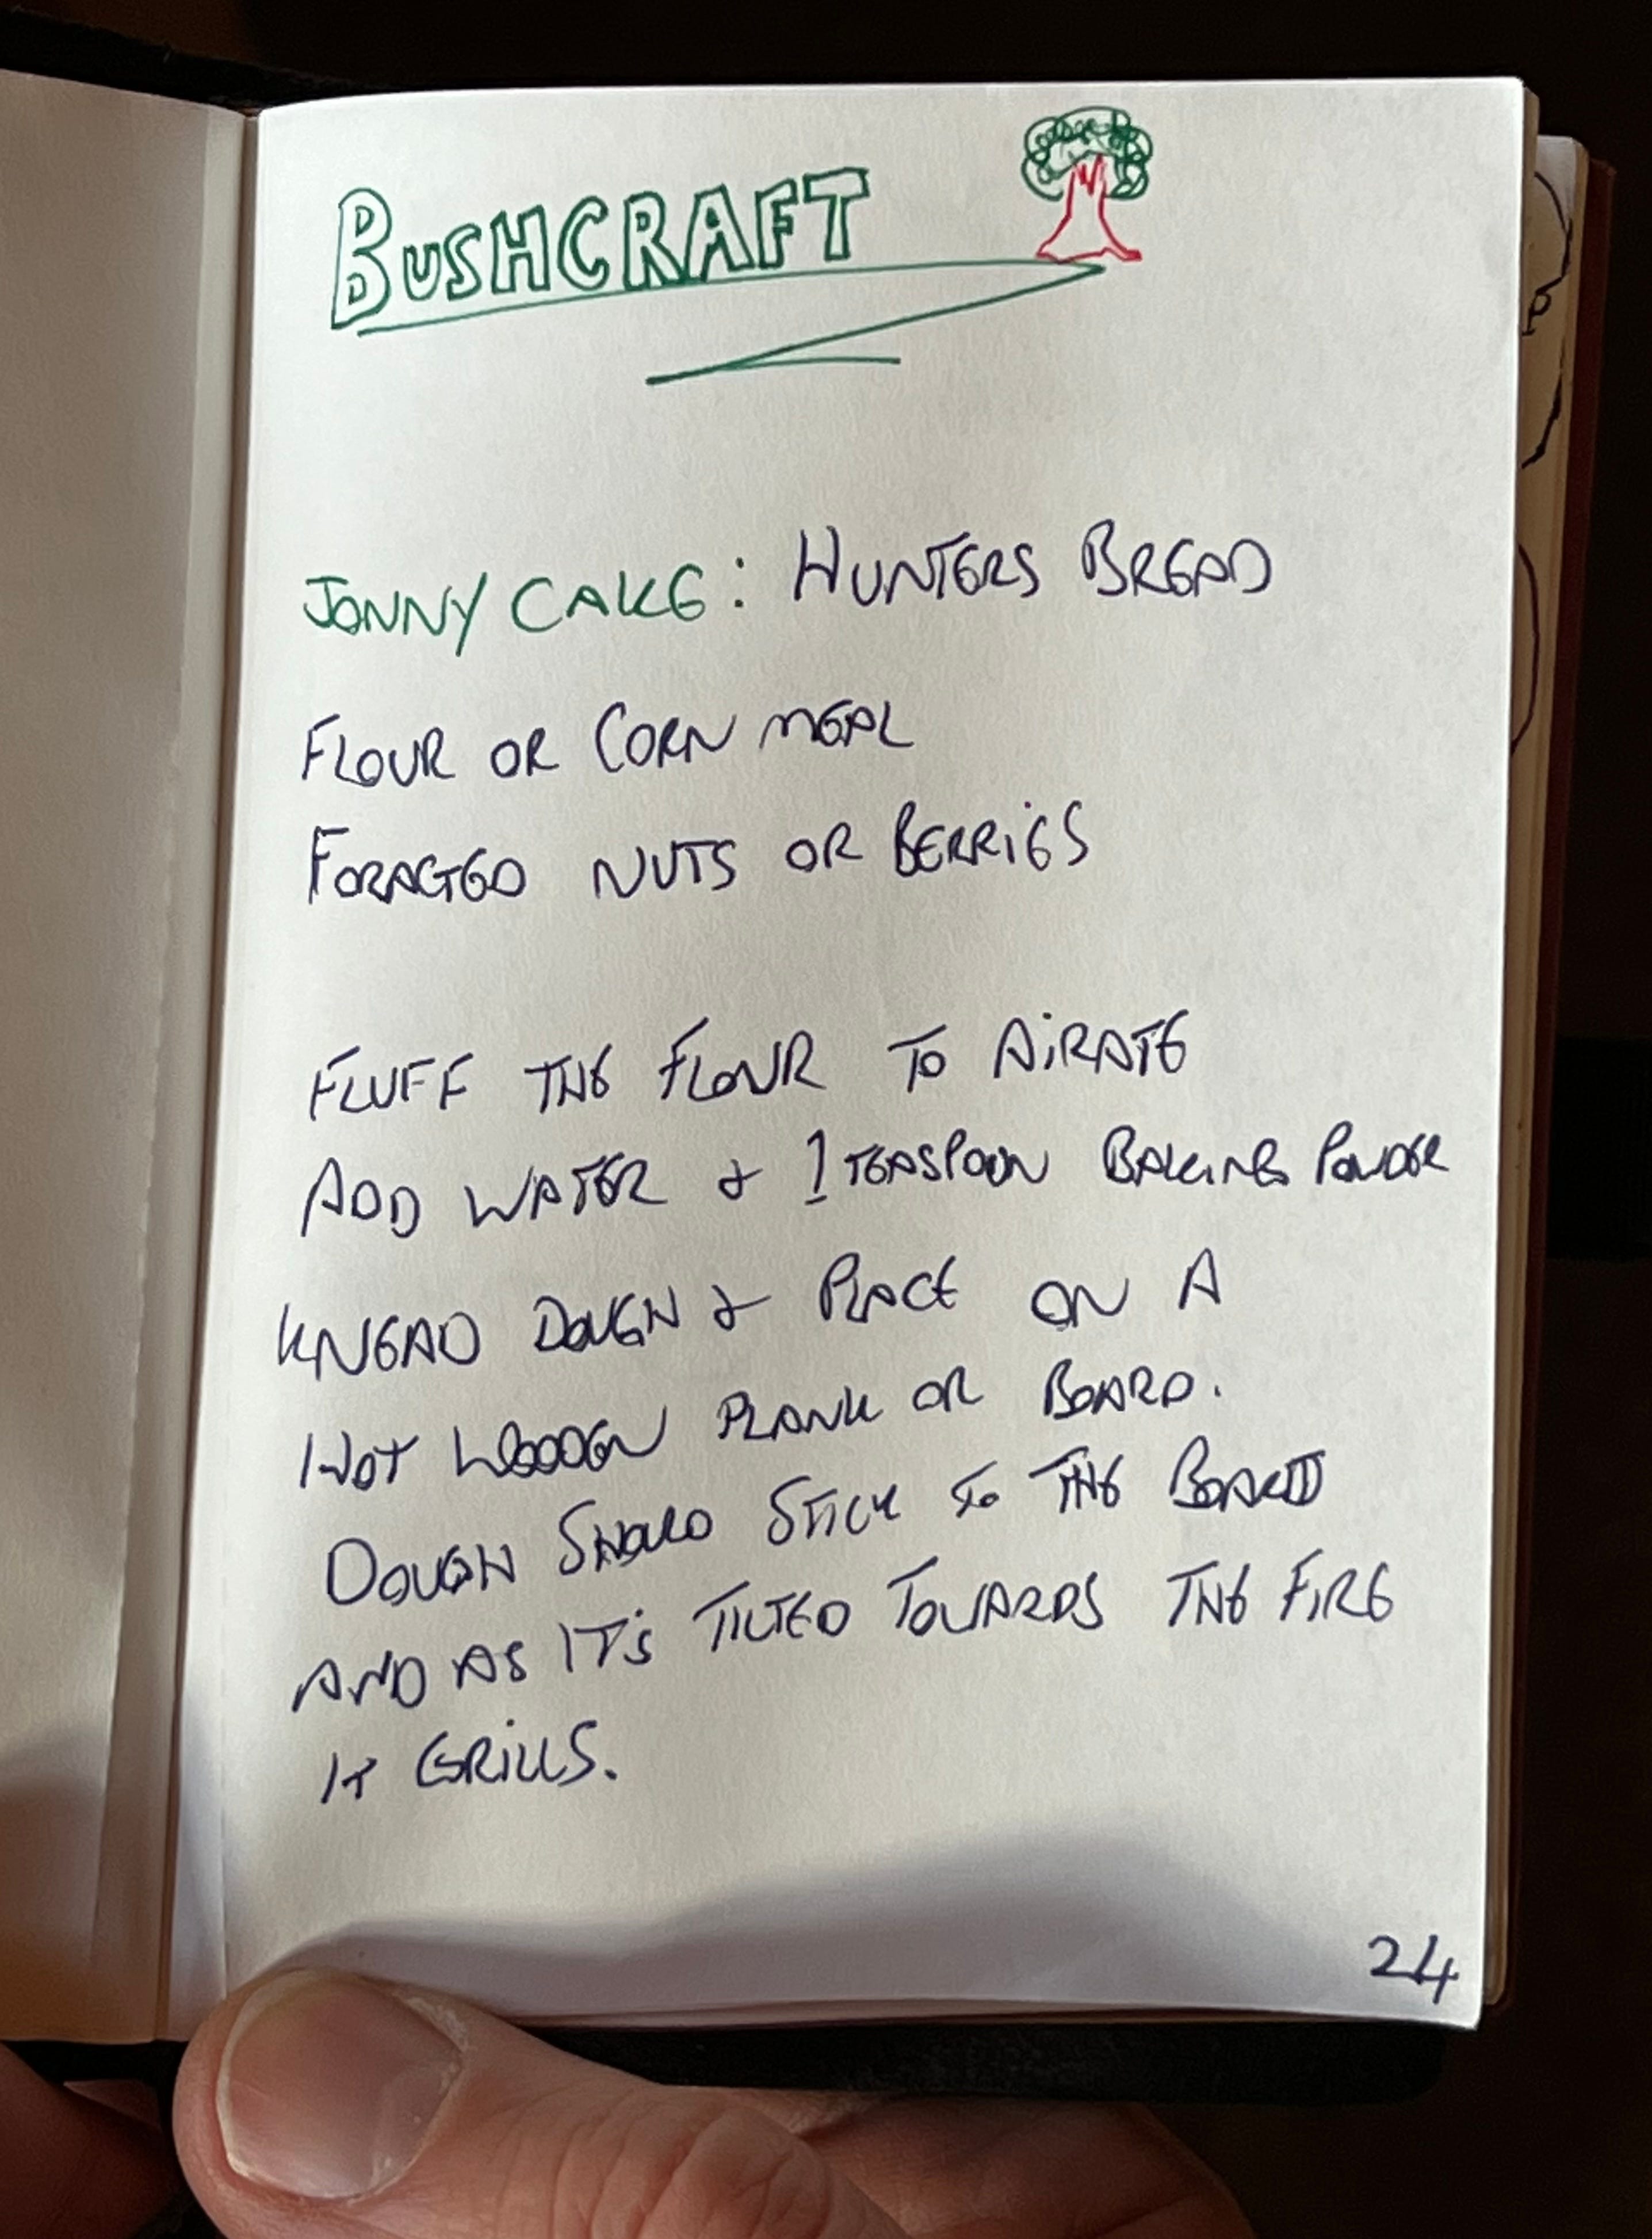 BUSHCRAFT
JONNY CAKE: HUNTERS BREAD
FLOUR OR CORN MEAL
FORAGED NUTS OR BERRIES
FLUFF THE FLOUR TO AIRATE
ADD WATER & 1 TEASPOON BAKING POWDER
KNEAD DOUGH & PLACE ON A
HOT WOODEN PLANK OR BOARD.
DOUGH SHOULD STICK TO THE BOARD
AND AS IT'S TILTED TOWARDS THE FIRE
IT GRILLS.
24